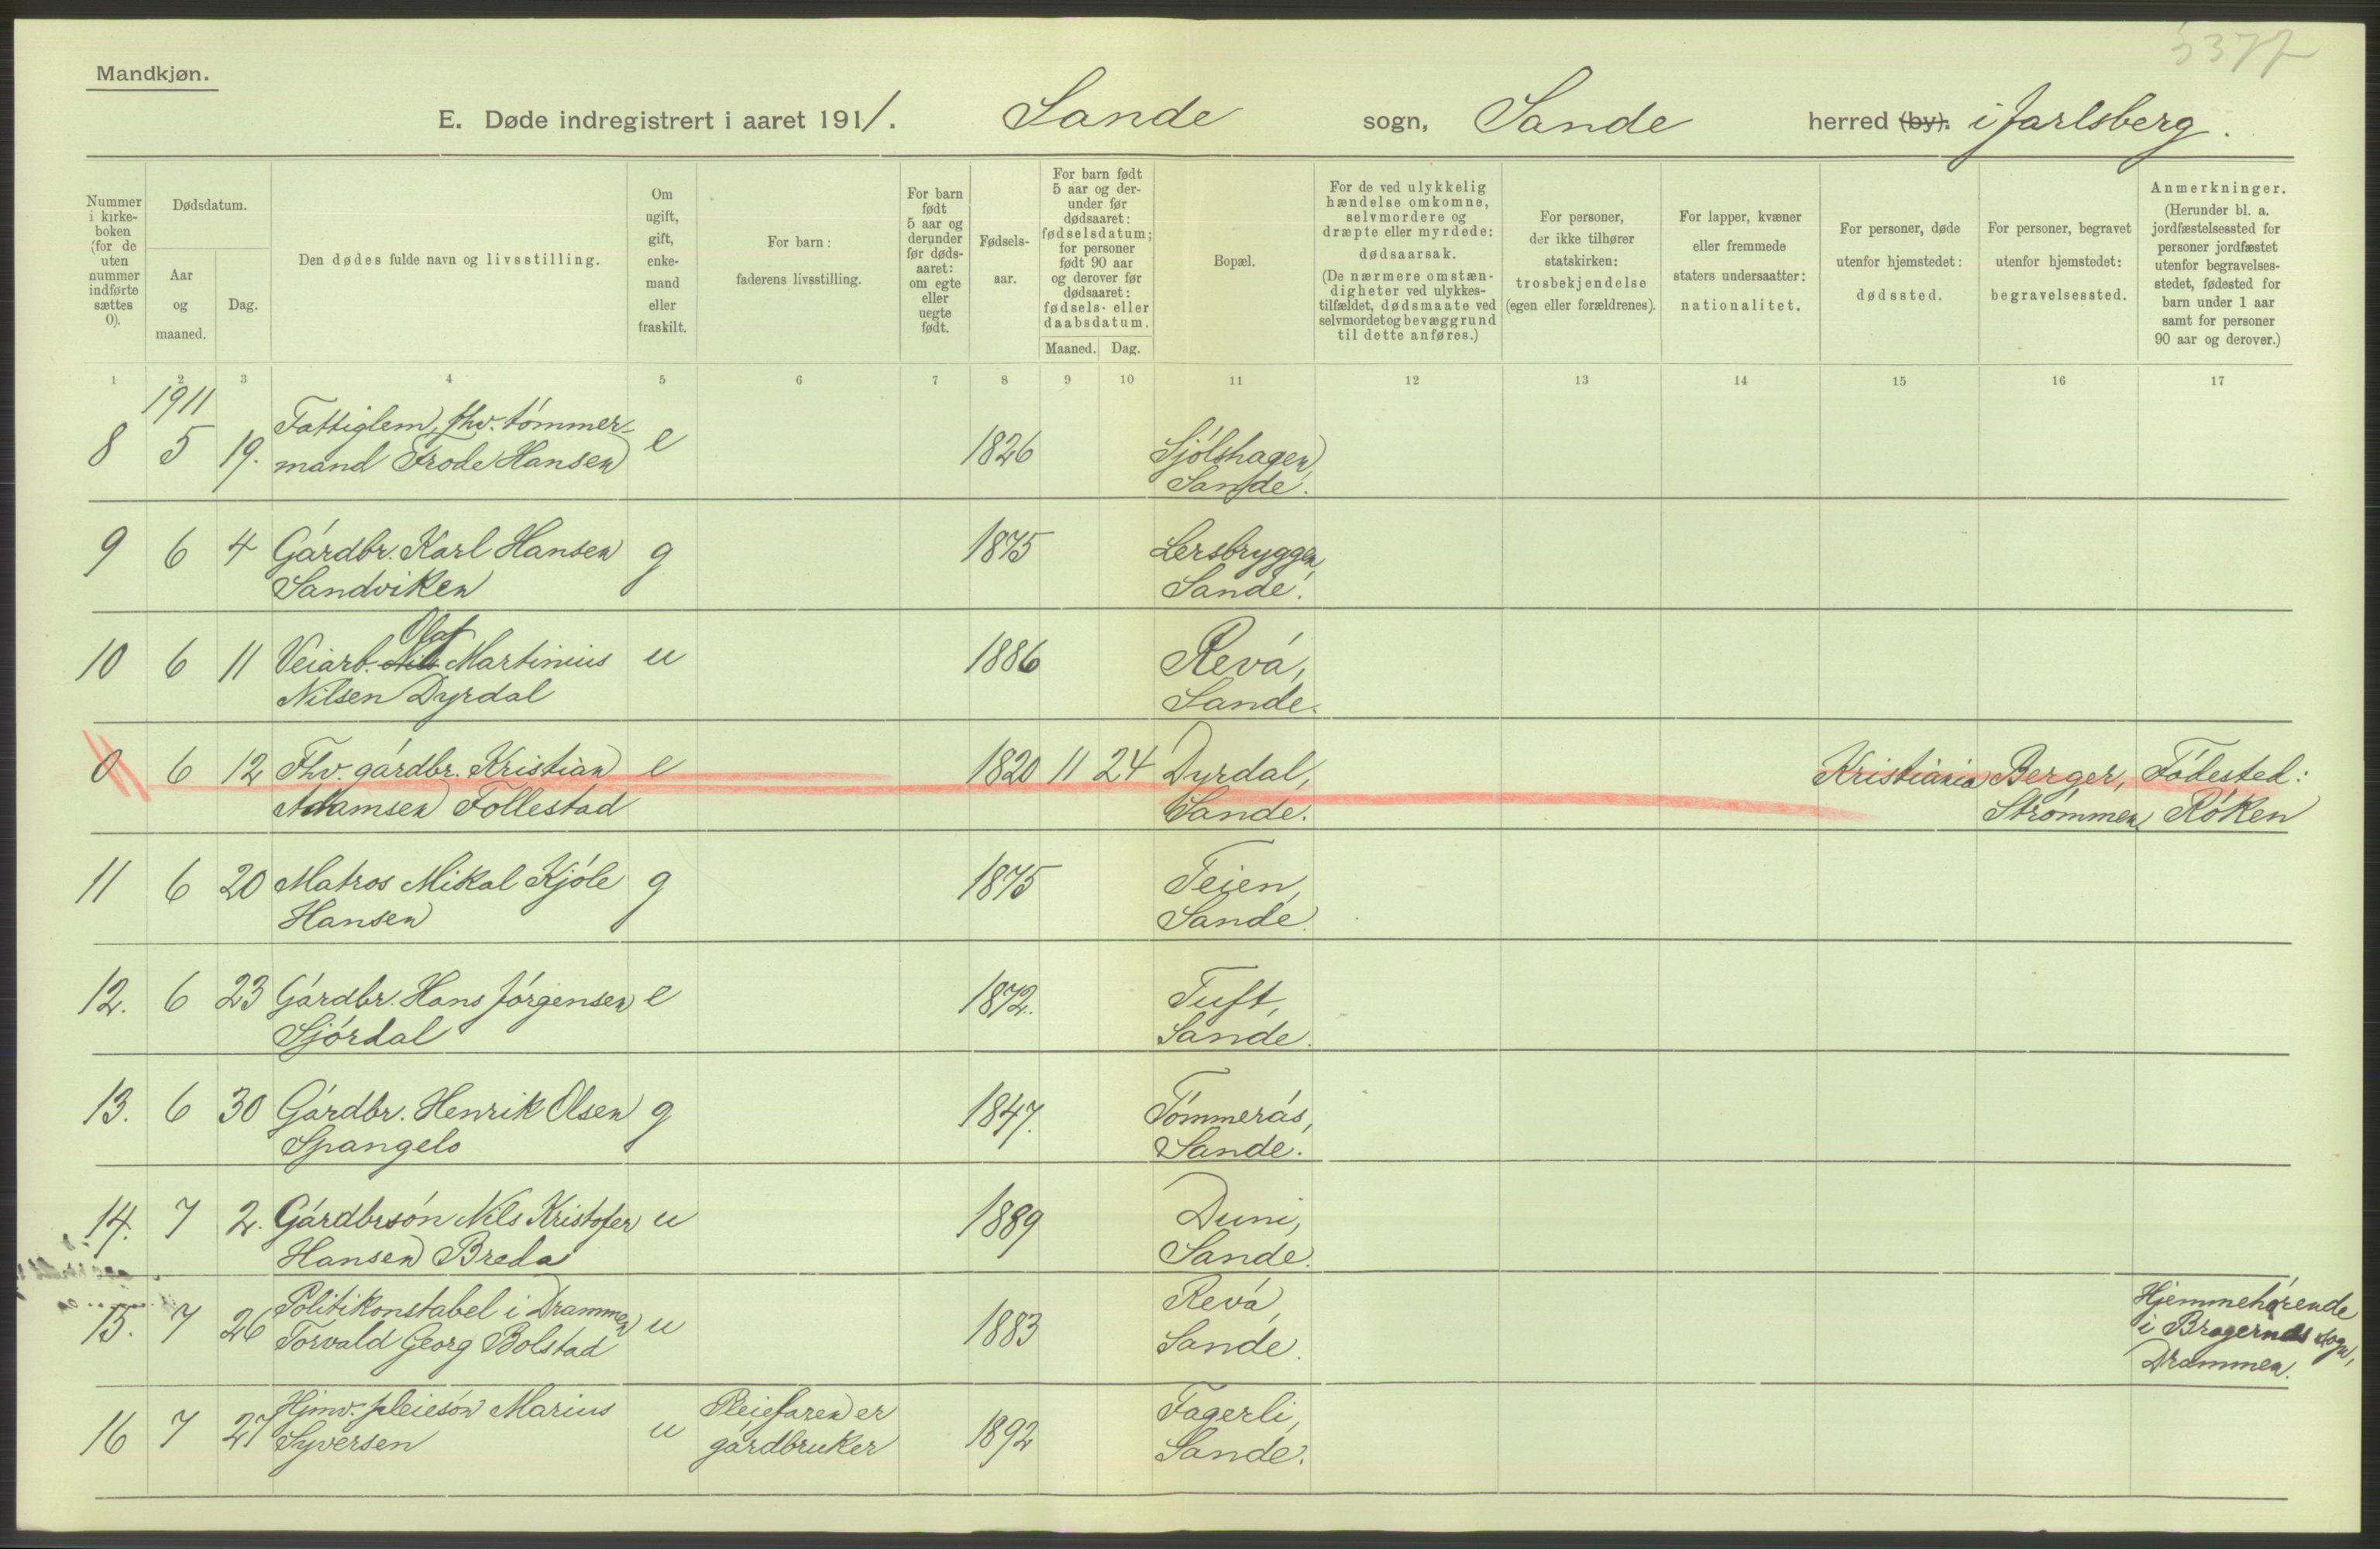 5377
Mandkjøn.
E. Døde indregistrert i aaret 1911. Sande sogn, Sande herred (by). i Jarlsberg.
Nummer i kirke-boken (for de uten nummer indførte sættes 0).
Dødsdatum.
Aar og maaned.
Dag.
Den dødes fulde navn og livsstilling.
Om ugift, gift, enke-mand eller fraskilt.
For barn: faderens livsstilling.
For barn født 5 aar og derunder før døds-aaret: om egte eller uegte født.
Fødsels-aar.
For barn født 5 aar og der-under før dødsaaret: fødselsdatum; for personer født 90 aar og derover før dødsaaret: fødsels- eller daabsdatum.
Maaned. Dag.
Bopæl.
For de ved ulykkelig hændelse omkomne, selvmordere og dræpte eller myrdede: dødsaarsak. (De nærmere omstæn-digheter ved ulykkes-tilfældet, dødsmaate ved selvmordet og bevæggrund til dette anføres.)
For personer, der ikke tilhører statskirken: trosbekjendelse (egen eller forældrenes).
For lapper, kvæner eller fremmede staters undersaatter: nationalitet.
For personer, døde utenfor hjemstedet: dødssted.
For personer, begravet utenfor hjemstedet: begravelsessted.
Anmerkninger. (Herunder bl. a. jordfæstelsessted for personer jordfæstet utenfor begravelses-stedet, fødested for barn under 1 aar samt for personer 90 aar og derover.)
1 2 3 4 5 6 7 8 9 10 11 12 13 14 15 16 17
1911
8 5 19. Fattiglem, fhv. tömmer- e 1826 Sjölshagen,
mand Frode Hansen Sande.
9 6 4 Gárdbr. Karl Hansen g 1875 Lersbryggen,
Sandviken Sande.
Olaf
10 6 11 Veiarb. Nils Martinius u 1886 Revá,
Nilsen Dyrdal Sande.
0 6 12 Fhv. gárdbr. Kristian e 1820 11 24 Dyrdal, Kristiania Berger, Födested:
Adamsen Follestad Sande. Strömmen Röken
11 6 20 Matros Mikal Kjöle g 1875 Teien,
Hansen Sande.
12. 6 23 Gárdbr. Hans Jörgensen e 1872. Tuft,
Sjördal Sande.
13. 6 30 Gárdbr. Henrik Olsen g 1847. Tömmerás,
Spangelo Sande.
14. 7 2. Gárdbrsön Nils Kristofer u 1889 Duni,
Hansen Breda Sande.
15. 7 26 Politikonstabel i Drammen u 1883 Revá, Hjemmehörende
Torvald Georg Bolstad Sande. i Bragernes sogn,
Drammen.
16 7 27 Hjmv. pleiesön Marius u Pleiefaren er 1892 Fagerli,
Syversen gárdbruker Sande.